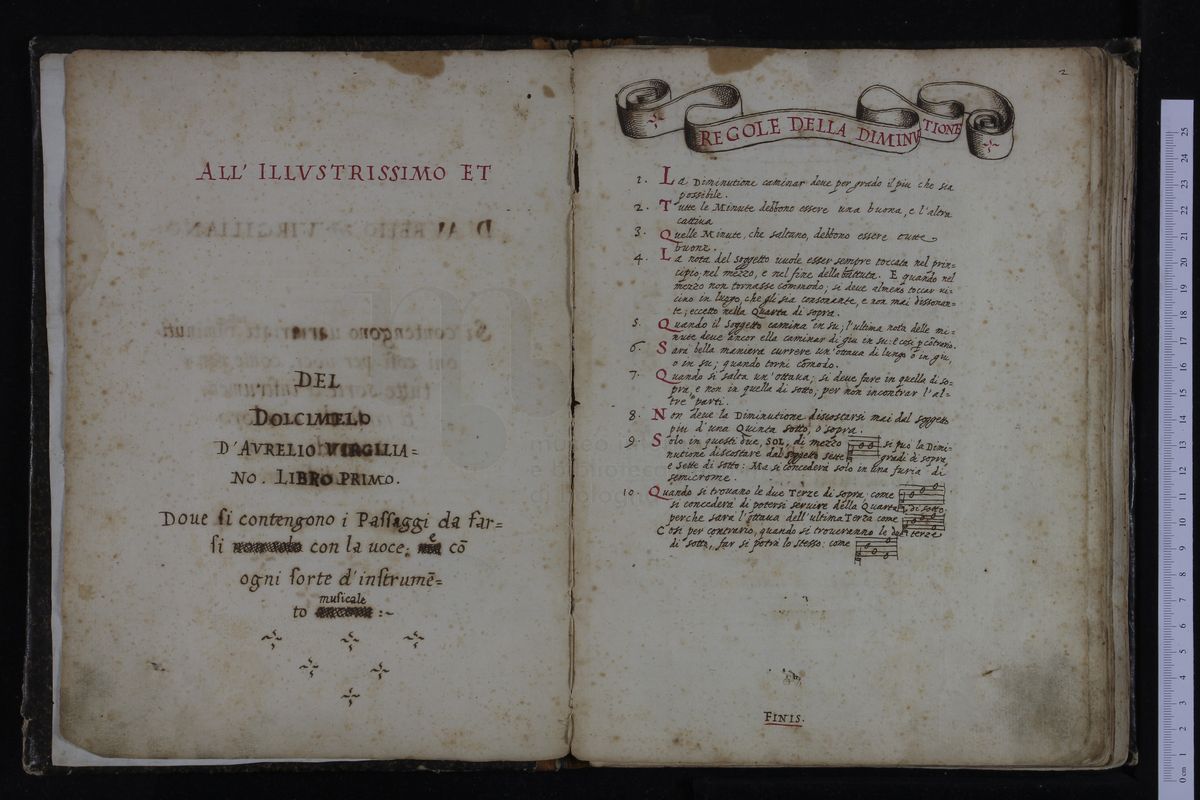 ALL' ILLVSTRISSIMO ET
DEL
DOLCIMELO
D'AVRELIO VIRGILIA=
NO. LIBRO PRIMO.
Doue si contengono i Passaggi da far=
si con la uoce: e cō
ogni sorte d'instrumē=
musicale
to :~
2
REGOLE DELLA DIMINVTIONE
1. La Diminutione caminar deue per grado il piu che sia
possibile.
2. Tutte le Minute debbono essere una buona, e l'altra
cattiua
3. Quelle Minute, che saltano, debbono essere tutte
buone.
4. La nota del soggetto uuole esser sempre toccata nel prin=
cipio, nel mezzo, e nel fine della battuta. E quando nel
mezzo non tornasse commodo; si deue almeno toccar ui=
cino in luogo, che gli sia consonante, e non mai dissonan=
te; eccetto nella Quarta di sopra.
5. Quando il soggetto camina in su; l'ultima nota delle mi=
nute deue ancor ella caminar di giu in su: e cosi p cōtrario.
6. Sara bella maniera currere un'ottaua di lungo o in giu,
o in su; quando torni cōmodo.
7. Quando si salta un'ottaua; si deue fare in quella di so=
pra, e non in quella di sotto; per non incontrar l'al=
tre parti.
8. Non deue la Diminutione discostarsi mai dal soggetto
piu d'una Quinta sotto, o sopra.
9. Solo in questi due, SOL, di mezzo si può la Dimi=
nutione discostare dal soggetto sette gradi di sopra,
e sette di sotto: Ma si concederà solo in una furia di
semicrome.
10. Quando si trouano le due Terze di sopra, come
si concederà di potersi seruire della Quarta, di sotto,
perche sarà l'ottaua dell'ultima Terza come
Cosi per contrario, quando si troueranno le due terze
di sotto, far si potrà lo stesso: come
FINIS.